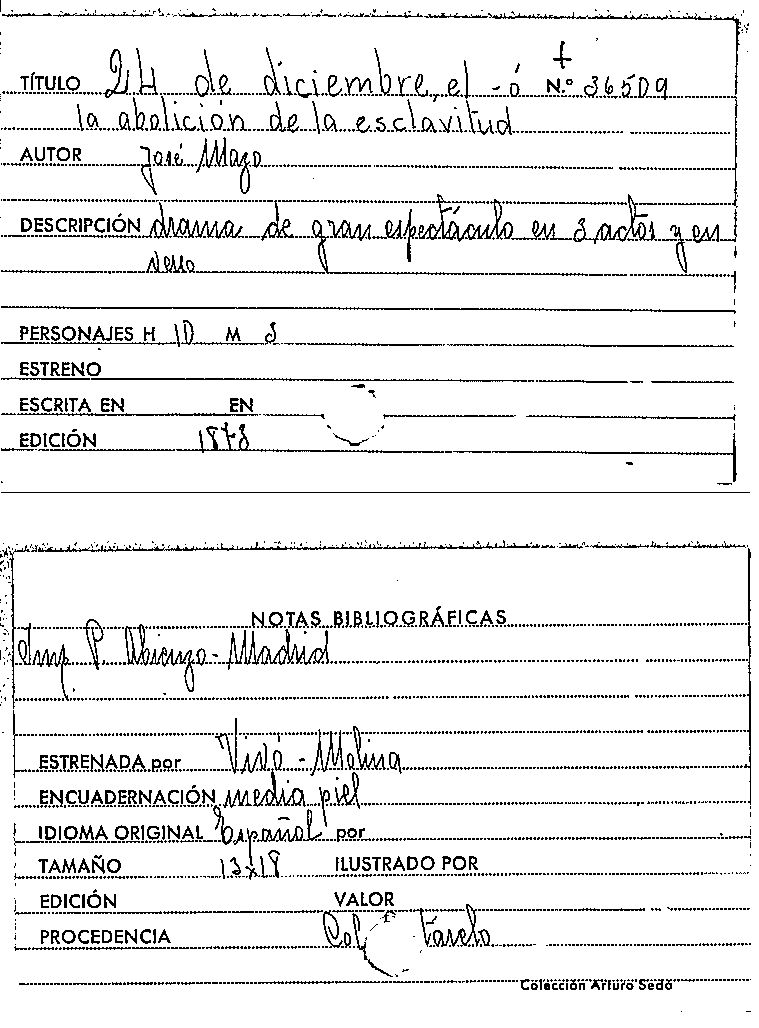 TÍTULO 24 de diciembre, el - ó N.º 36509
la abolición de la esclavitud
AUTOR José Mazo
DESCRIPCIÓN drama de gran espectáculo en 3 actos y en
verso
PERSONAJES H 10 M 3
ESTRENO
ESCRITA EN EN
EDICIÓN 1878
NOTAS BIBLIOGRÁFICAS
Imp P. Abienzo - Madrid
ESTRENADA por Vivó - Molina
ENCUADERNACIÓN media piel
IDIOMA ORIGINAL Español por
TAMAÑO 13x18 ILUSTRADO POR
EDICIÓN VALOR
PROCEDENCIA Col
Colección Arturo Sedó